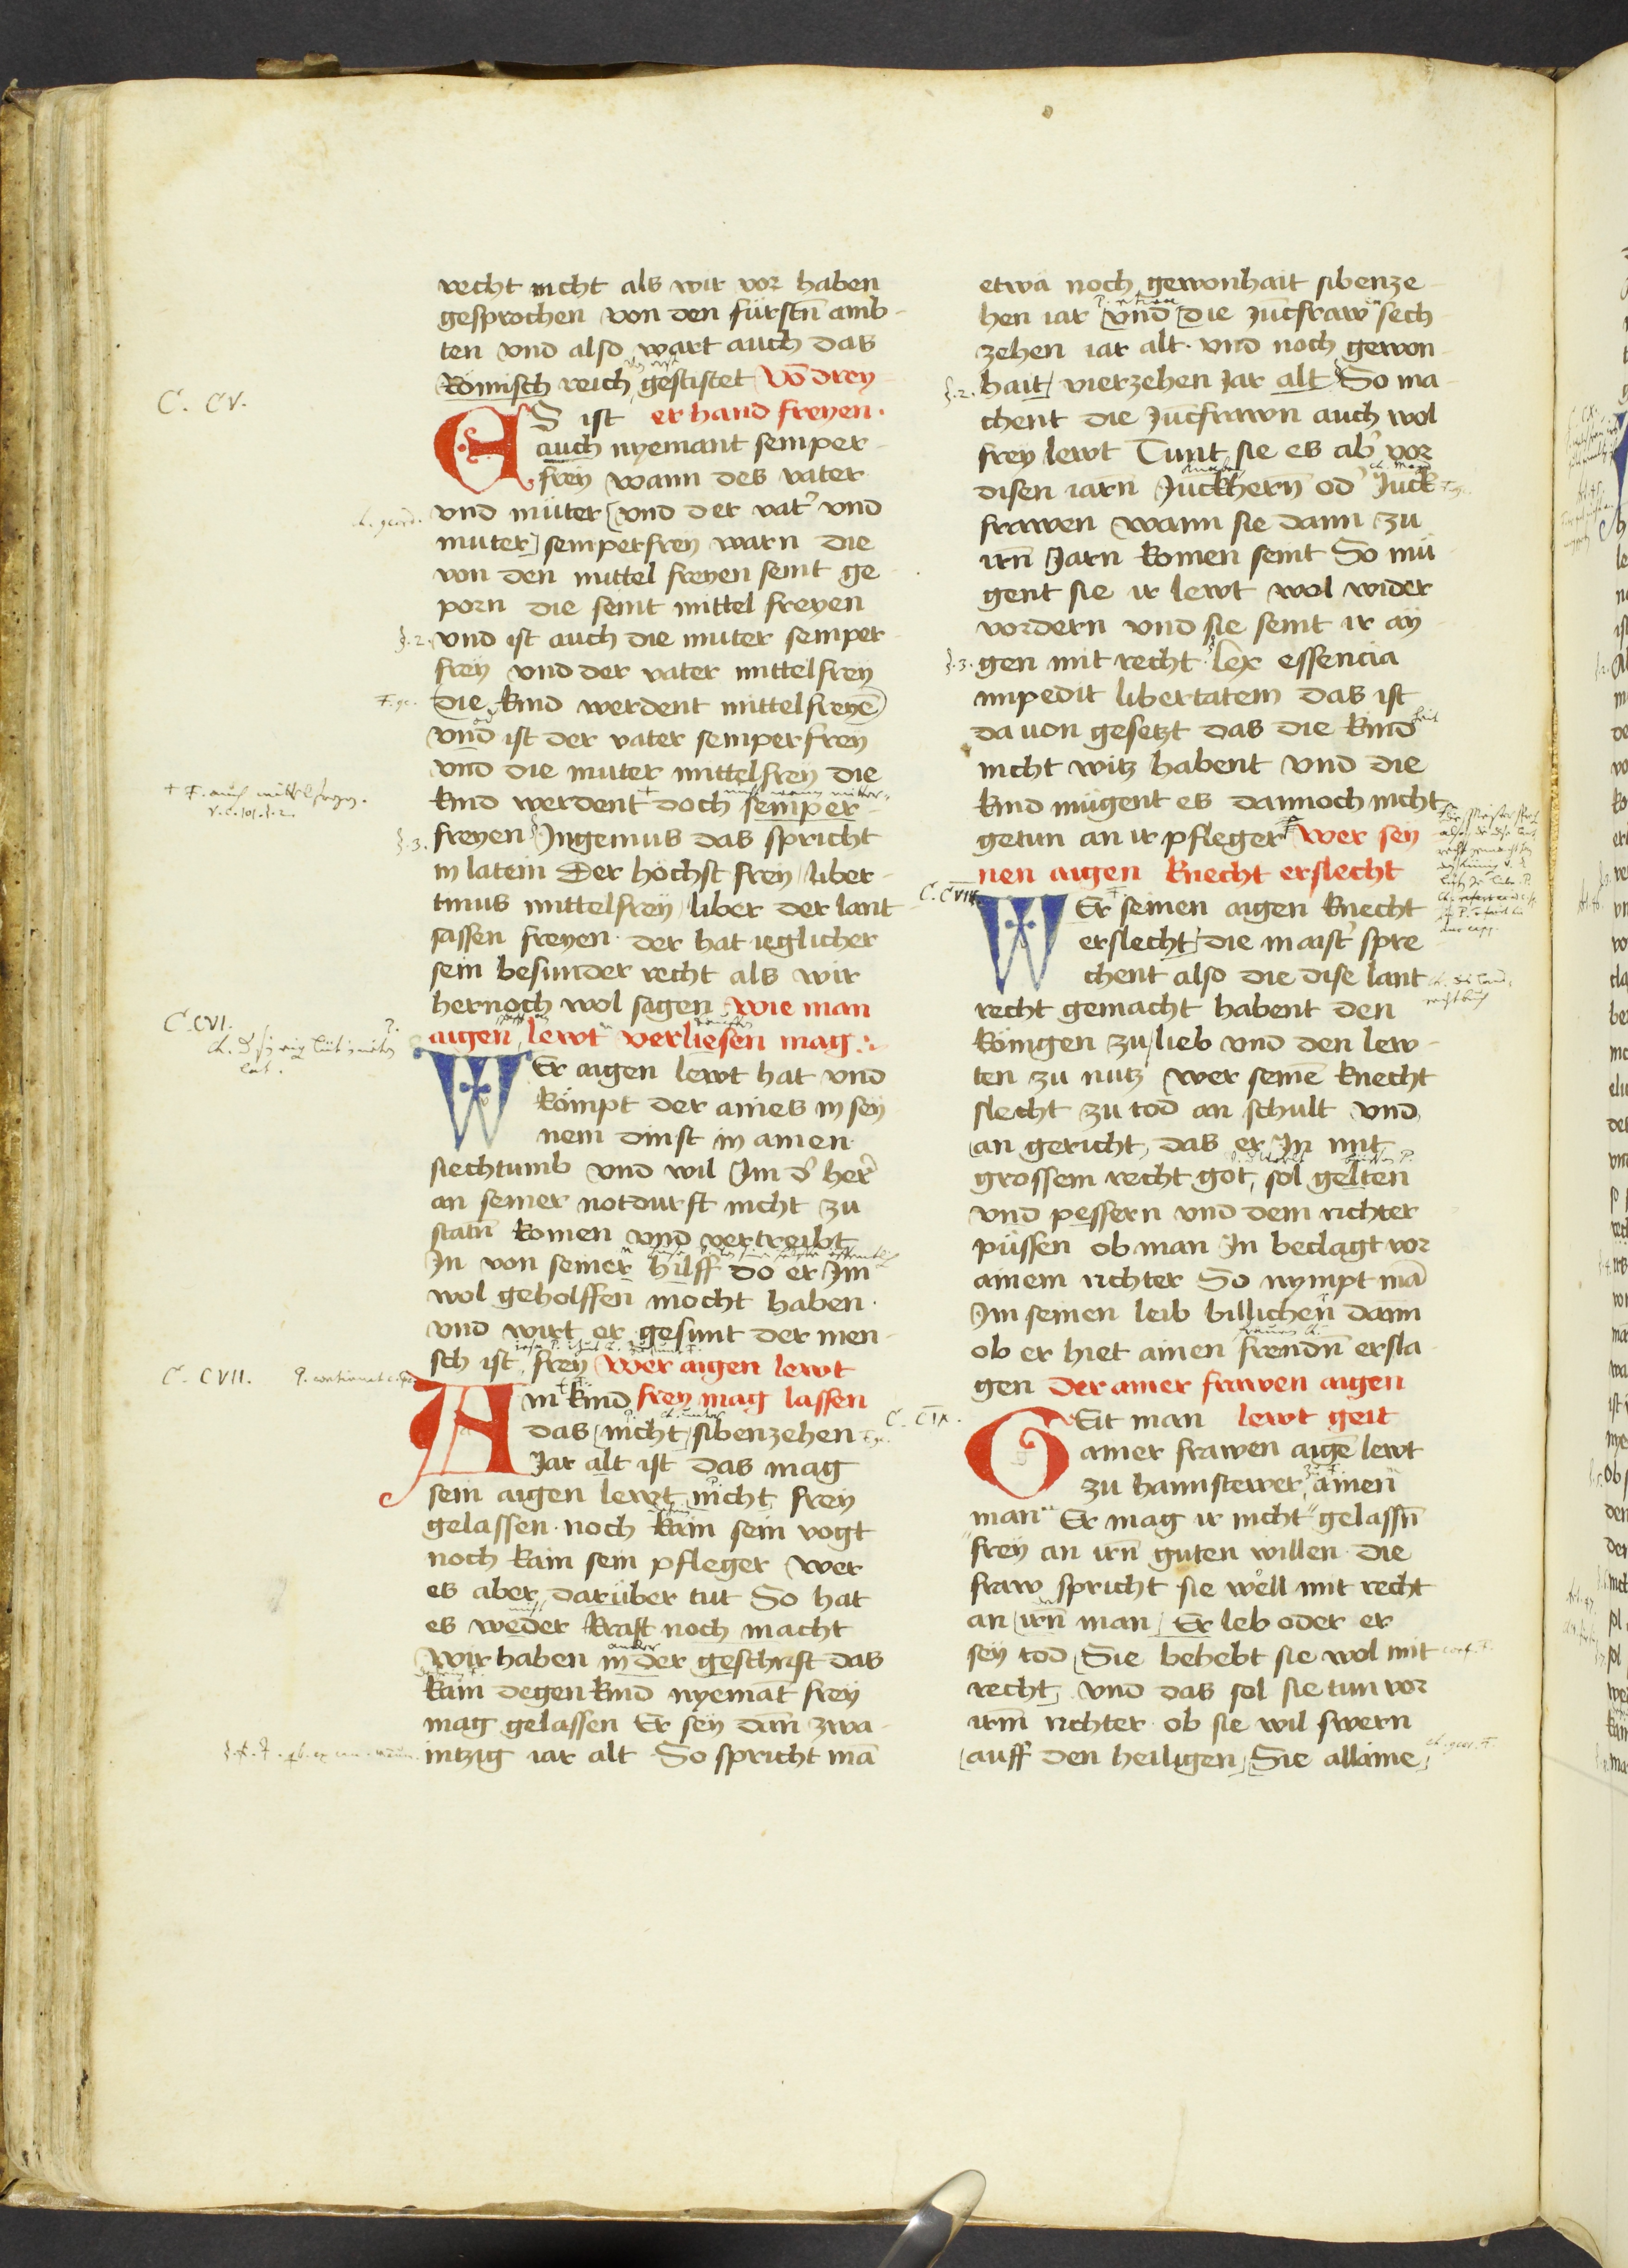 recht nicht als wir vor haben
gesprochen von den fürstn̄ amb
ten vnd also wart auch das
Römisch reich gestiftet Vō drey
ES ist er hand freyen.
auch nyemant semper
frey wann des vater
vnd müter vnd der vat' vnd
muter semperfrey warn die
von den mittel freyen seint ge
porn die seint mittel freyen
vnd ist auch die muter semper
frey vnd der vater mittelfrey
die kind werdent mittelfreyē
vnd ist der vater semperfrey
vnd die muter mittelfrey die
kind werdent doch semper
freyen Ingenuus das spricht
in latein Der höchst frey liber
tinus mittelfrey liber der lant
sassen freyen. der hat ieglicher
sein besunder recht als wir
hernoch wol sagen Wie man
aigen lewt verliesen mag.
WEr aigen lewt hat vnd
kömpt der aines in sey
nem dinst in ainen
siechtumb vnd wil Im d' her'
an seiner notdurft nicht zu
statn̄ komen vnd vertreibt
In von seiner hilff do er Im
wol geholffen mocht haben.
vnd wirt er gesunt der men
sch ist frey Wer aigen lewt
AIn kind frey mag lassen
das nicht sibenzehen
Jar alt ist das mag
sein aigen lewt nicht frey
gelassen. noch kain sein vogt
noch kain sein pfleger Wer
es aber darüber tut So hat
es weder kraft noch macht
Wir haben in der geschrift das
kain degen kind nyemāt frey
mag gelassen Er sey dan̄ zwa
intzig iar alt So spricht mā
etwa noch gewonhait sibenze
hen iar vnd die Jūcfraw sech
zehen iar alt. vnd noch gewon
hait vierzehen Jar alt So ma
chent die Jūcfrawn auch wol
frey lewt Tunt sie es ab' vor
disen iarn Juckhern̄ od' Juck
frawen wann sie dann zu
irn̄ Jarn komen seint So mü
gent sie ir lewt wol wider
vordern vnd sie seint ir ay
gen mit recht. lex essencia
impedit libertatem das ist
da uon gesetzt das die kind
nicht witz habent vnd die
kind mügent es dannoch nicht
getun an ir pfleger Wer sey
nen aigen knecht erslecht
WEr seinen aigen knecht
erslecht die maist' spre
chent also die dise lant
recht gemacht habent den
königen zu lieb vnd den lew
ten zu nutz wer seinē knecht
slecht zu tod an schult vnd
an gericht, das er In mit
grossem recht got sol gelten
vnd pessern vnd dem richter
püssen ob man In beclagt vor
ainem richter So nympt mā
Im seinen leib billichen dann
ob er hiet ainen frendn̄ ersla
gen Der ainer frawen aigen
GEit man lewt geit
ainer frawen aigē lewt
zu hannstewer ainen
man Er mag ir nicht gelassn̄
frey an irn̄ guten willen. die
fraw spricht sie wöll mit recht
an irn̄ man Er leb oder er
sey tod Sie behebt sie wol mit
recht vnd das sol sie tun vor
irm̄ richter. ob sie wil swern
auff den heiligen Sie allaine
C. CV.
§. 2.
§. 3.
C. CVI.
C. CVII.
§. 2.
§. 3.
C. CVIII.
C. CIX.